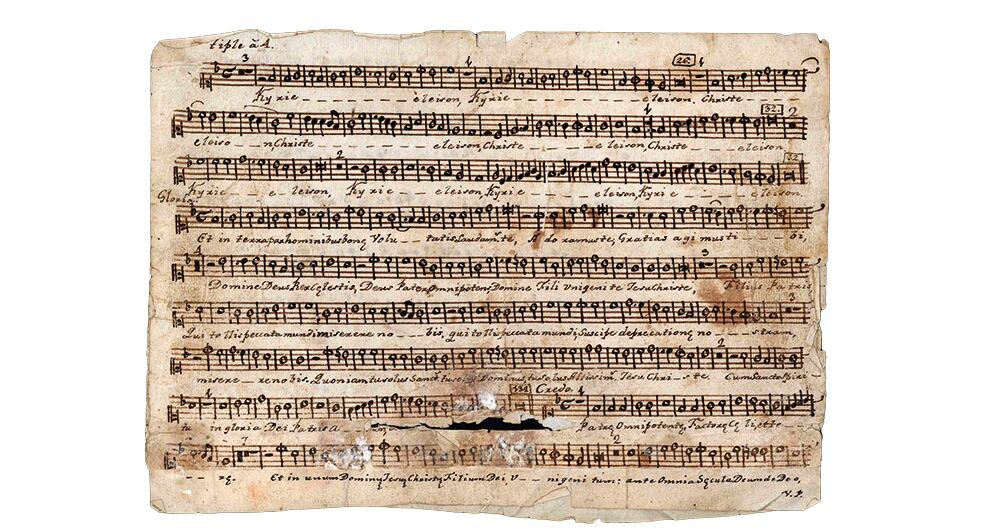 tiple à 4.
3 4 26. 4
Kyrie eleison, Kyrie eleison. Christe
4 32. 2
eleiso nChriste eleison, Christe eleison, Christe eleison
2 32
Kyrie eleison, Kyrie eleison, Kyrie eleison, Kyrie eleison.
Gloria.
Et in terra pax hominibus bonę Volu tatis, Laudam.te, A do ramuste, Gratias agimus ti bi,
4 3
Domine Deus Rex Cęlestis, Deus Pater Omnipotens, Domine Fili Unigenite Jesu Christe, Filius Patris
3
Qui tollis peccata mundi miserere no bis. qui tollis peccata mundi, Suscipe deprecationę no stram,
2
misere re nobis. Quoniam tu solus Sanct. tu solus Dominus, tu solus Altissim. Jesu Chri ste. Cum Sancto Spiri
4 134 Credo. 4
tu in gloria Dei Patris A Patrę Omnipotentę, Factorę Cę li, et te
7 2
rę. Et in unum Dominų Jesų Christų Filium Dei V nigeni tum: ante Omnia Sęcula Deum de Deo,
V. S.